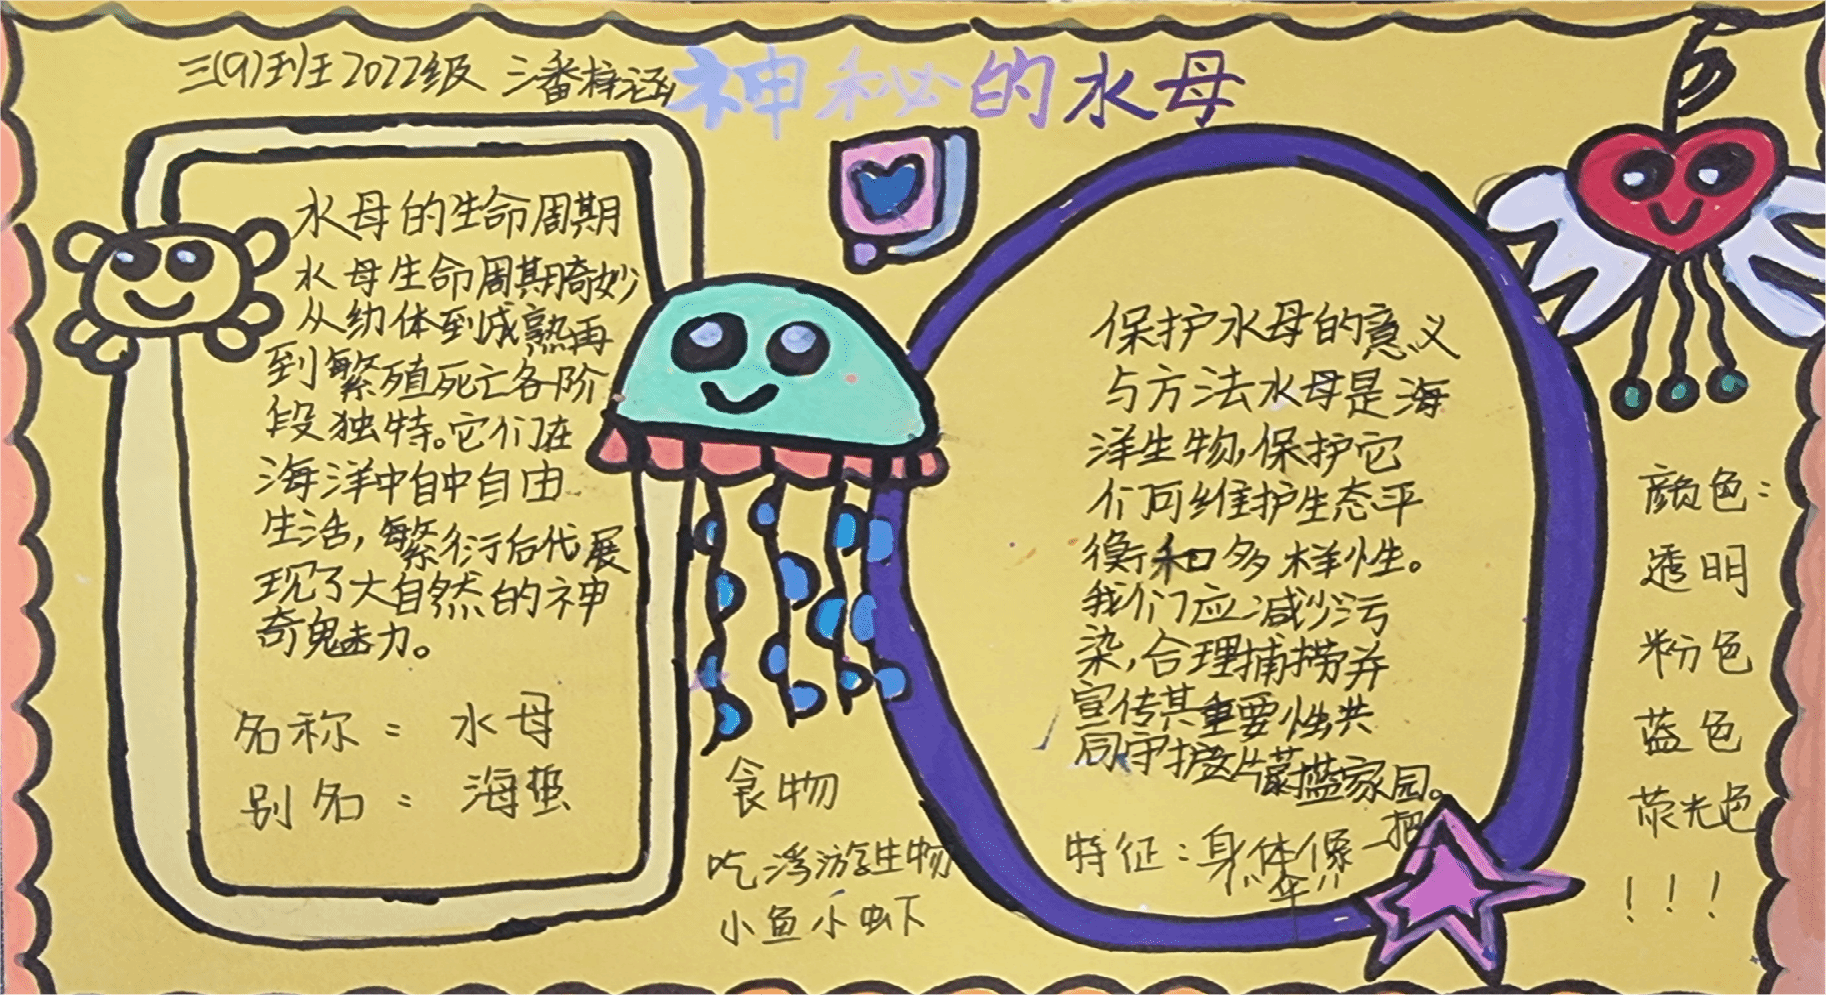 三(9)班 2022级 潘梓涵
神秘的水母
水母的生命周期
水母生命周期奇妙
从幼体到成熟再
到繁殖死亡各阶
段独特。它们在
海洋中自中自由
生活，繁衍后代展
现了大自然的神
奇魅力。
名称：水母
别名：海蜇
食物
吃浮游生物
小鱼小虾
保护水母的意义
与方法水母是海
洋生物，保护它
们可维护生态平
衡和多样性。
我们应减少污
染，合理捕捞并
宣传其重要性共
同守护这片蔚蓝家园。
特征：身体像一把
伞
颜色：
透明
粉色
蓝色
荧光色
！！！